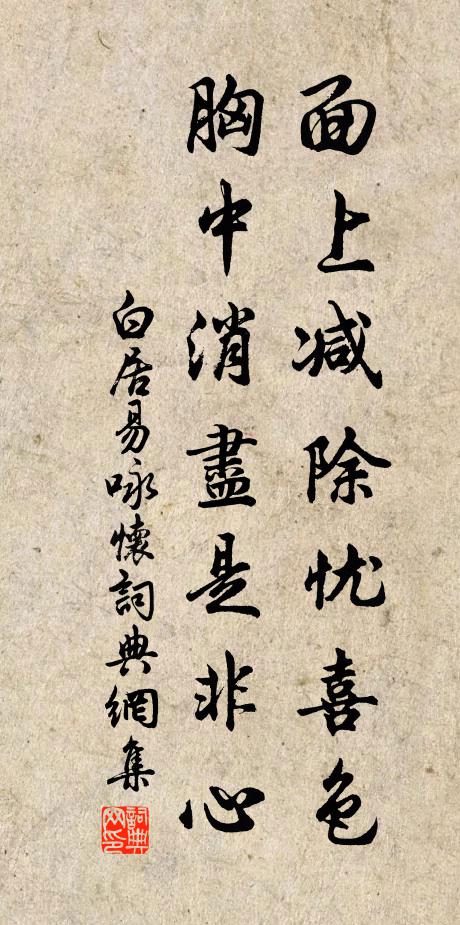 面上减除忧喜色
胸中消盡是非心
白居易咏懷詞典網集
詞典网印